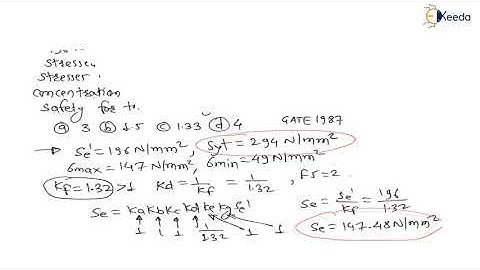 Keeda
stresses
stresses
concentration
safety for t.
ⓐ 3 ⓑ 1.5 ⓒ 1.33 ⓓ 4 GATE 1987
→ Se' = 196 N/mm², Syt = 294 N/mm²
σmax = 147 N/mm², σmin = 49 N/mm²
Kf = 1.32 > 1 Kd = 1/Kf = 1/1.32, FS = 2
Se = Ka Kb Kc Kd Ke Kg Se'
1 1 1 1/1.32 1 1
Se = Se'/Kf = 196/1.32
Se = 147.48 N/mm²